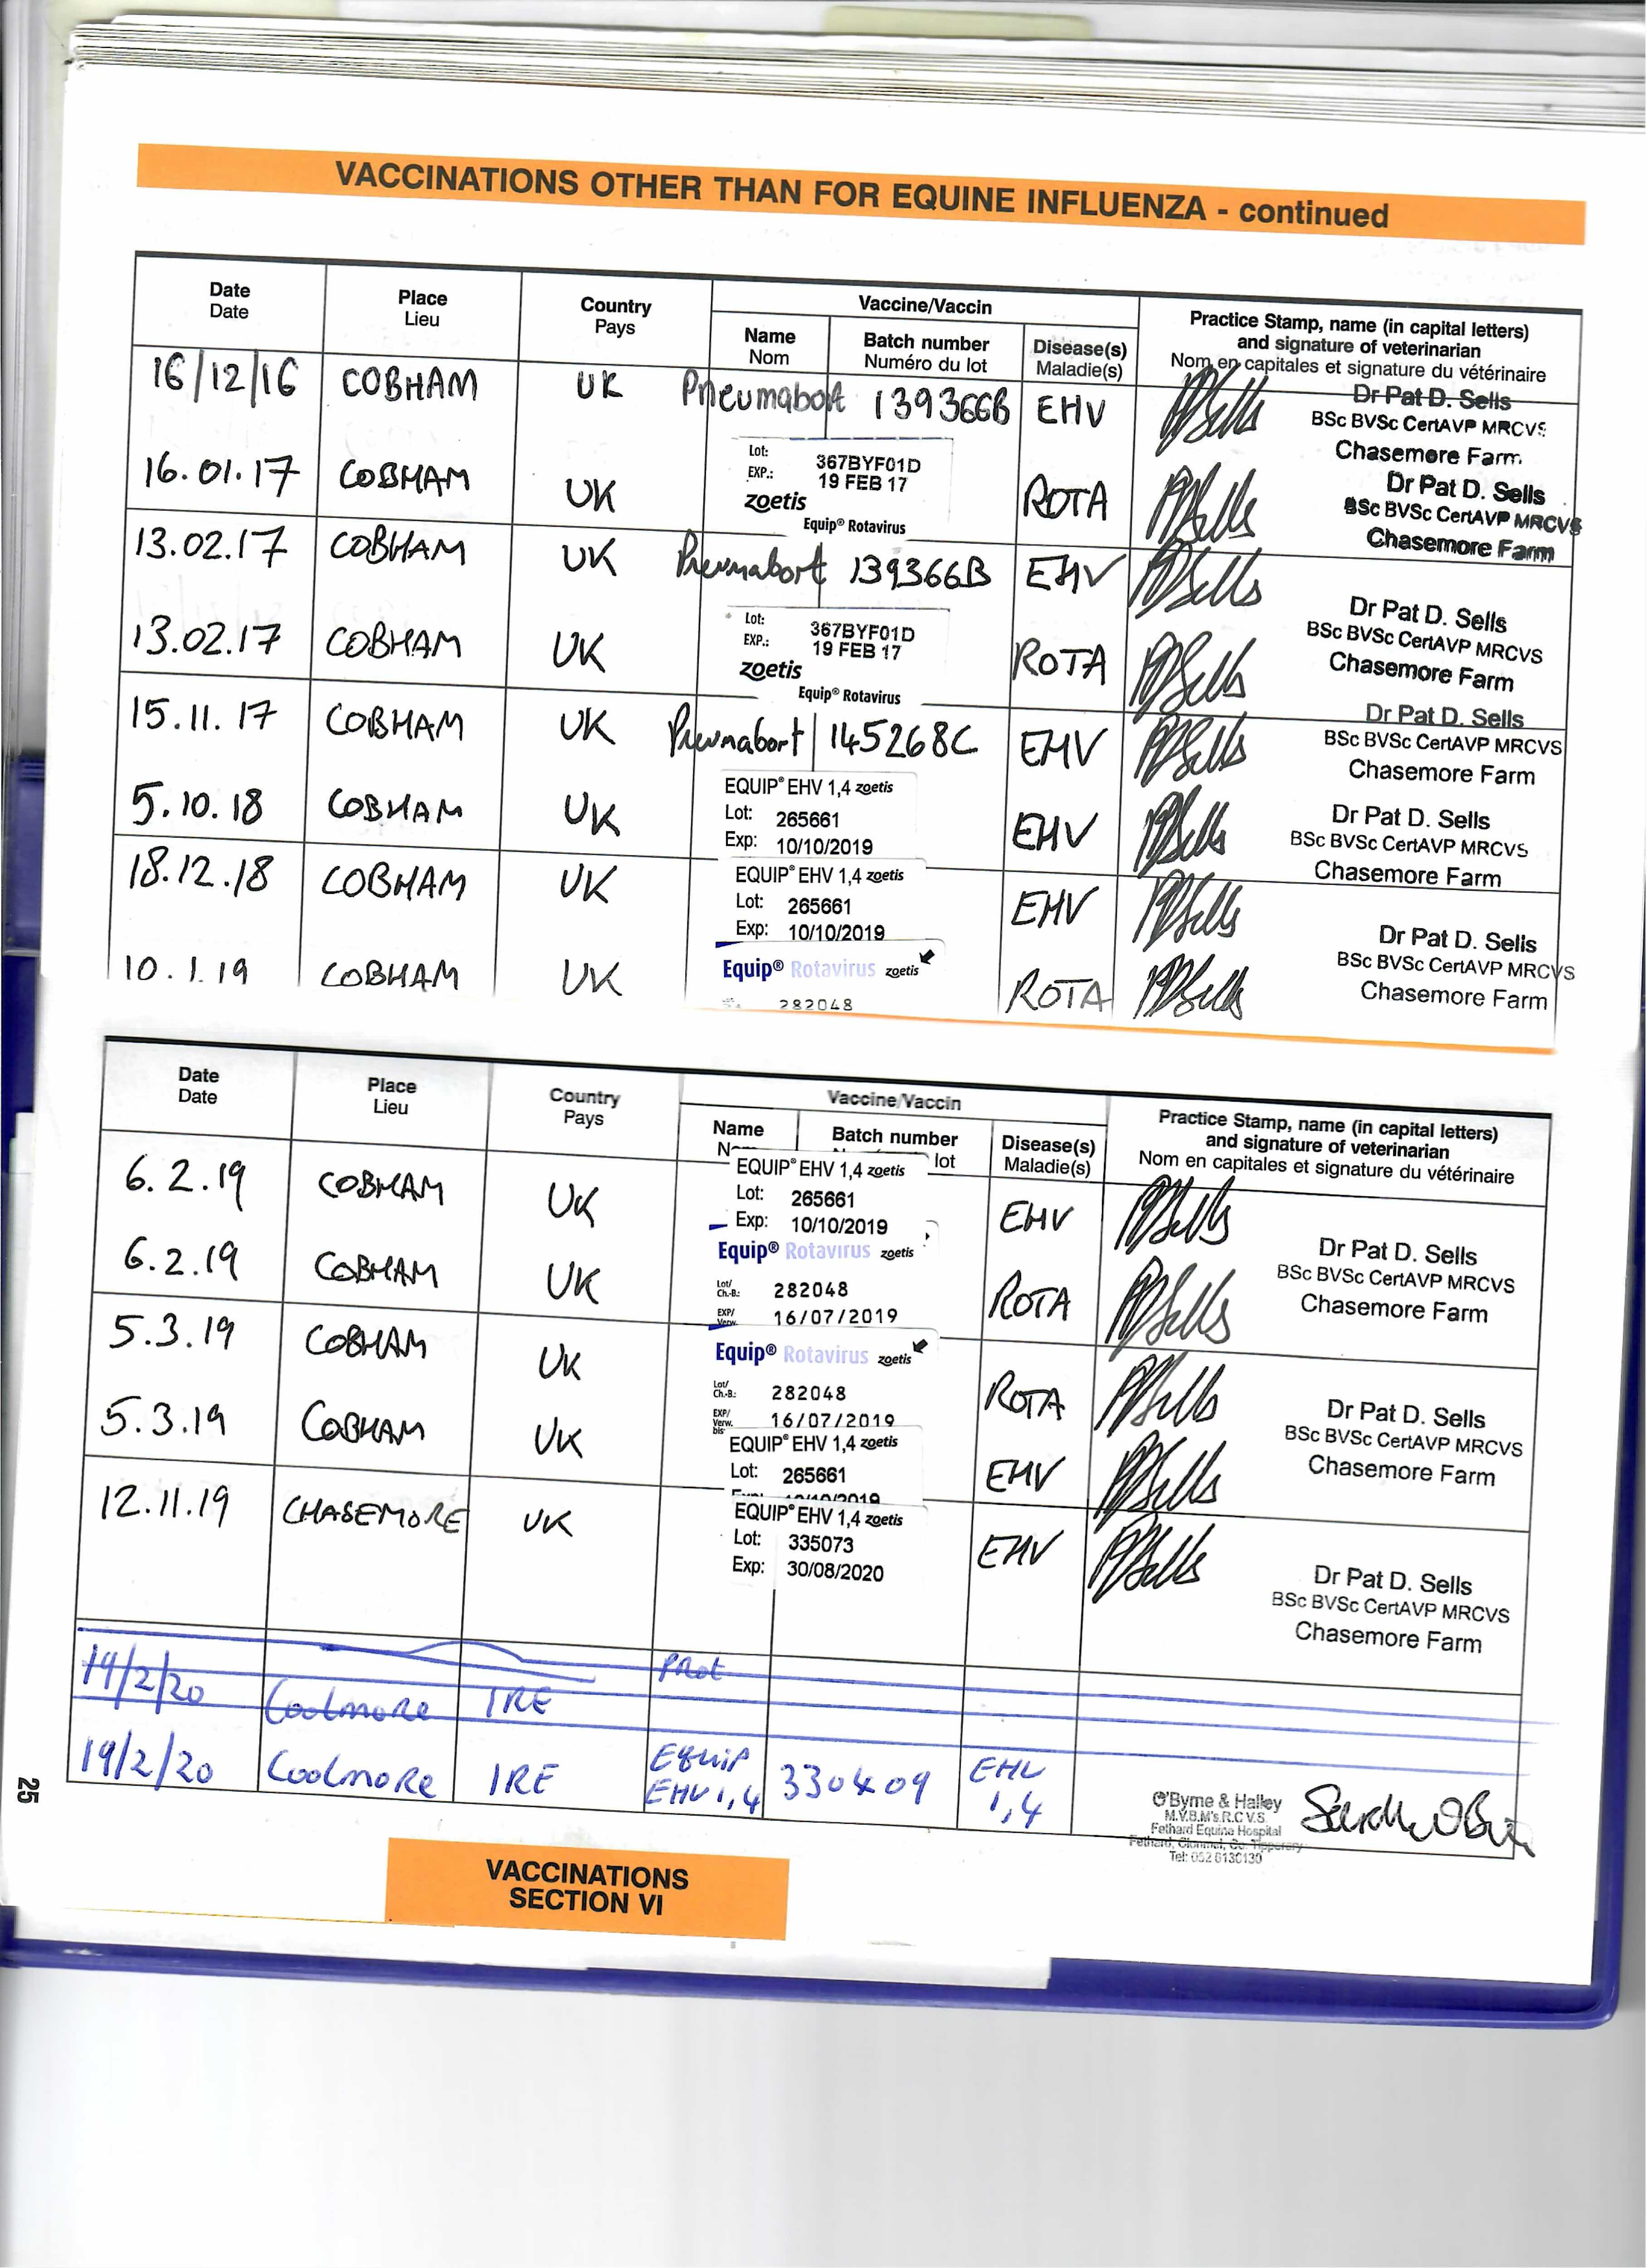 VACCINATIONS OTHER THAN FOR EQUINE INFLUENZA - continued
Date Place Country Vaccine/Vaccin Practice Stamp, name (in capital letters)
Date Lieu Pays Name Batch number Disease(s) and signature of veterinarian
Nom Numéro du lot Maladie(s) Nom en capitales et signature du vétérinaire
16/12/16 COBHAM UK Pneumabort 139366B EHV PDSells Dr Pat D. Sells
BSc BVSc CertAVP MRCVS
Chasemore Farm
16.01.17 COBHAM UK Lot: 367BYF01D ROTA PDSells Dr Pat D. Sells
EXP.: 19 FEB 17 BSc BVSc CertAVP MRCVS
zoetis Chasemore Farm
Equip® Rotavirus
13.02.17 COBHAM UK Pneumabort 139366B EHV PDSells
13.02.17 COBHAM UK Lot: 367BYF01D ROTA PDSells Dr Pat D. Sells
EXP.: 19 FEB 17 BSc BVSc CertAVP MRCVS
zoetis Chasemore Farm
Equip® Rotavirus
15.11.17 COBHAM UK Pneumabort 145268C EHV PDSells Dr Pat D. Sells
BSc BVSc CertAVP MRCVS
Chasemore Farm
5.10.18 COBHAM UK EQUIP® EHV 1,4 zoetis EHV PDSells Dr Pat D. Sells
Lot: 265661 BSc BVSc CertAVP MRCVS
Exp: 10/10/2019 Chasemore Farm
18.12.18 COBHAM UK EQUIP® EHV 1,4 zoetis EHV PDSells
Lot: 265661
Exp: 10/10/2019 Dr Pat D. Sells
10.1.19 COBHAM UK Equip® Rotavirus zoetis ROTA PDSells BSc BVSc CertAVP MRCVS
282048 Chasemore Farm
Date Place Country Vaccine/Vaccin Practice Stamp, name (in capital letters)
Date Lieu Pays Name Batch number Disease(s) and signature of veterinarian
lot Maladie(s) Nom en capitales et signature du vétérinaire
6.2.19 COBHAM UK EQUIP® EHV 1,4 zoetis EHV PDSells
Lot: 265661
Exp: 10/10/2019 Dr Pat D. Sells
6.2.19 COBHAM UK Equip® Rotavirus zoetis ROTA PDSells BSc BVSc CertAVP MRCVS
Lot/ Ch.-B.: 282048 Chasemore Farm
EXP/ Verw. 16/07/2019
5.3.19 COBHAM UK Equip® Rotavirus zoetis ROTA PDSells
Lot/ Ch.-B.: 282048 Dr Pat D. Sells
EXP/ Verw. bis 16/07/2019 BSc BVSc CertAVP MRCVS
5.3.19 COBHAM UK EQUIP® EHV 1,4 zoetis EHV PDSells Chasemore Farm
Lot: 265661
Exp: 10/10/2019
12.11.19 CHASEMORE UK EQUIP® EHV 1,4 zoetis EHV PDSells
Lot: 335073 Dr Pat D. Sells
Exp: 30/08/2020 BSc BVSc CertAVP MRCVS
Chasemore Farm
19/2/20 Coolmore IRE Prot
19/2/20 Coolmore IRE Equip EHV 1,4 330409 EHV 1,4
O'Byrne & Halley
M.V.B.M's.R.C.V.S.
Fethard Equine Hospital
Fethard, Clonmel, Co Tipperary
Tel: 052 6130130
25
VACCINATIONS
SECTION VI